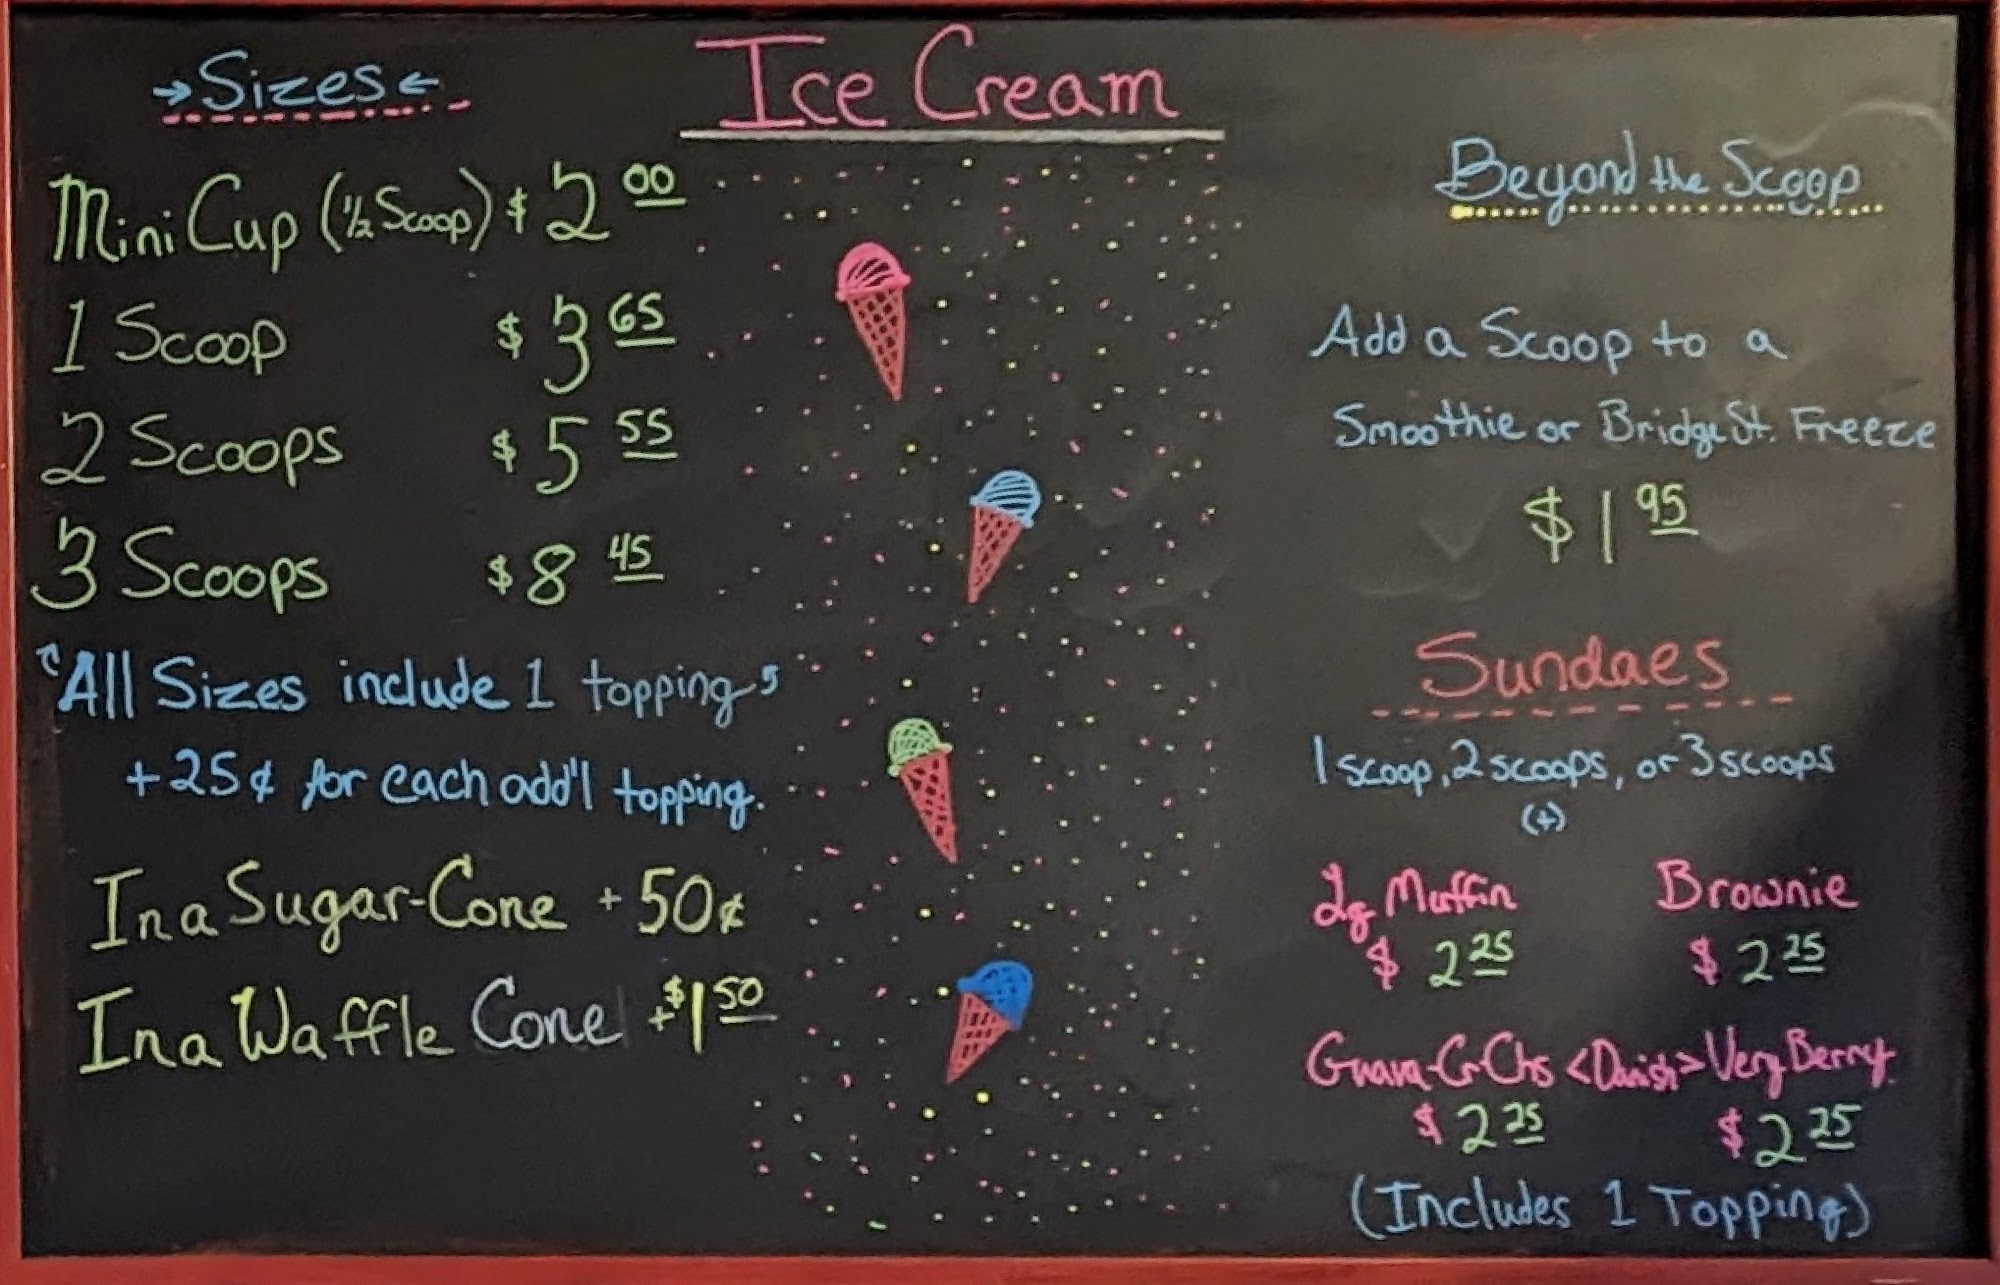 Ice Cream
→Sizes←
Mini Cup (½ Scoop) $2.00
1 Scoop $3.65
2 Scoops $5.55
3 Scoops $8.45
All Sizes include 1 topping
+25¢ for each add'l topping.
In a Sugar-Cone +50¢
In a Waffle Cone +$1.50
Beyond the Scoop
Add a Scoop to a
Smoothie or Bridge St. Freeze
$1.95
Sundaes
1 scoop, 2 scoops, or 3 scoops
(+)
Lg Muffin Brownie
$2.25 $2.25
Guava-Cr-Chs <Danish> Very Berry
$2.25 $2.25
(Includes 1 Topping)